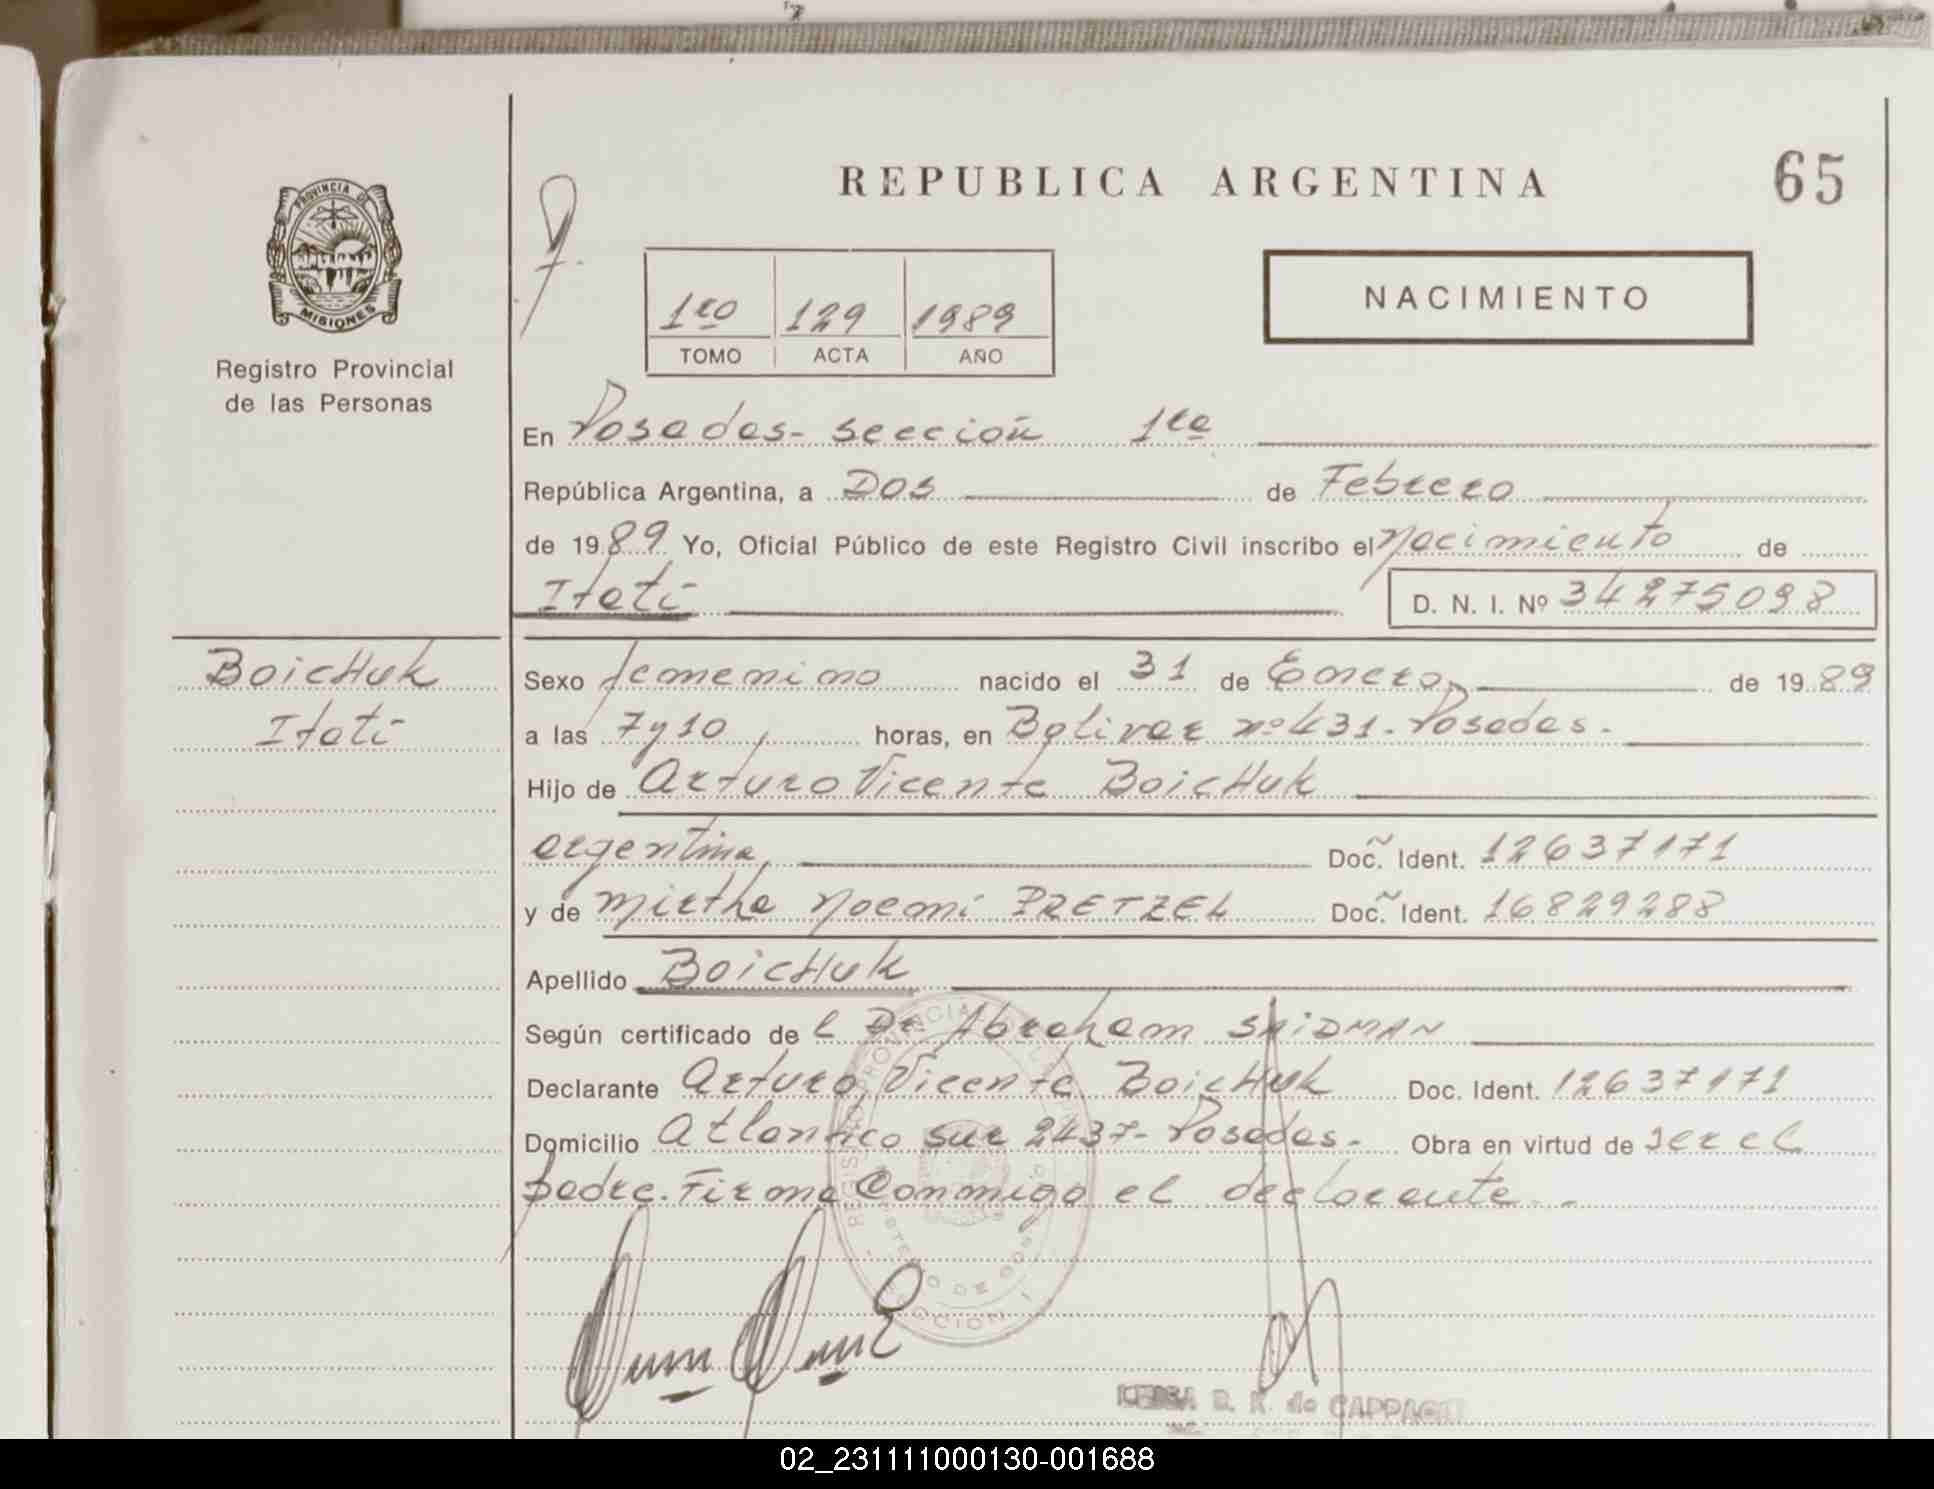 REPUBLICA ARGENTINA
65
PROVINCIA DE
MISIONES
Registro Provincial
de las Personas
1ro 129 1989
TOMO ACTA AÑO
NACIMIENTO
En Posadas - sección 1ra
República Argentina, a Dos de Febrero
de 1989 Yo, Oficial Público de este Registro Civil inscribo el Nacimiento de
Itatí D. N. I. Nº 34275098
Boichuk
Itatí
Sexo femenino nacido el 31 de Enero, de 1989
a las 7 y 10, horas, en Bolivar nº 431 - Posadas.
Hijo de Arturo Vicente Boichuk
argentina, Doc. Ident. 12637171
y de Mirtha Noemí PRETZEL Doc. Ident. 16829288
Apellido Boichuk
Según certificado del Dr. Abraham SAIDMAN
Declarante Arturo Vicente Boichuk Doc. Ident. 12637171
Domicilio Atlantico sur 2437 - Posadas - Obra en virtud de ser el
padre. Firma Conmigo el declarante. -
R. K. de
02_231111000130-001688